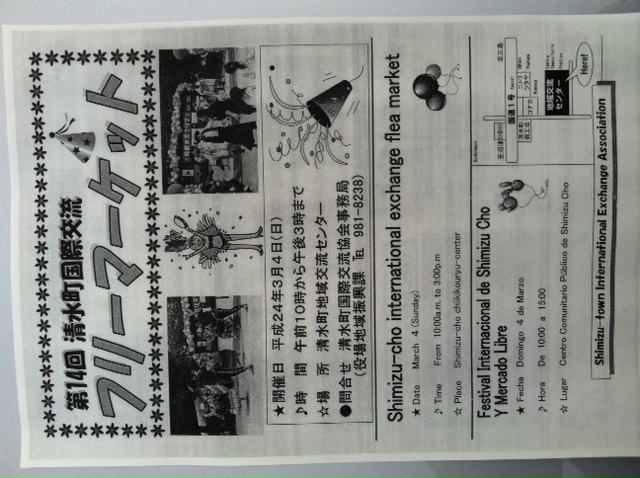 第14回 清水町国際交流
フリーマーケット
★開催日 平成24年3月4日(日)
♪時 間 午前10時から午後3時まで
☆場 所 清水町地域交流センター
●問合せ 清水町国際交流協会事務局
(役場地域振興課 ℡ 981-8238)
Shimizu-cho international exchange flea market
★ Date March 4 (Sunday)
♪ Time From 10:00a.m. to 3:00p.m
☆ Place Shimizu-cho chiikikouryu-center
Festival Internacional de Shimizu Cho
Y Mercado Libre
★ Fecha Domingo 4 de Marzo
♪ Hora De 10:00 a 15:00
☆ Lugar Centro Comunitario Público de Shimizu Cho
至三島
国道1号
ニトリ
ツタヤ
コナカ
清水町
商工会
至沼津
地域交流
センター
Here!
Shimizu-town International Exchange Association